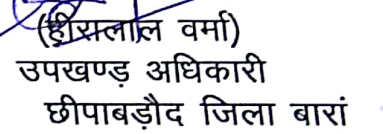 (हीरालाल वर्मा)
उपखण्ड़ अधिकारी
छीपाबड़ौद जिला बारां